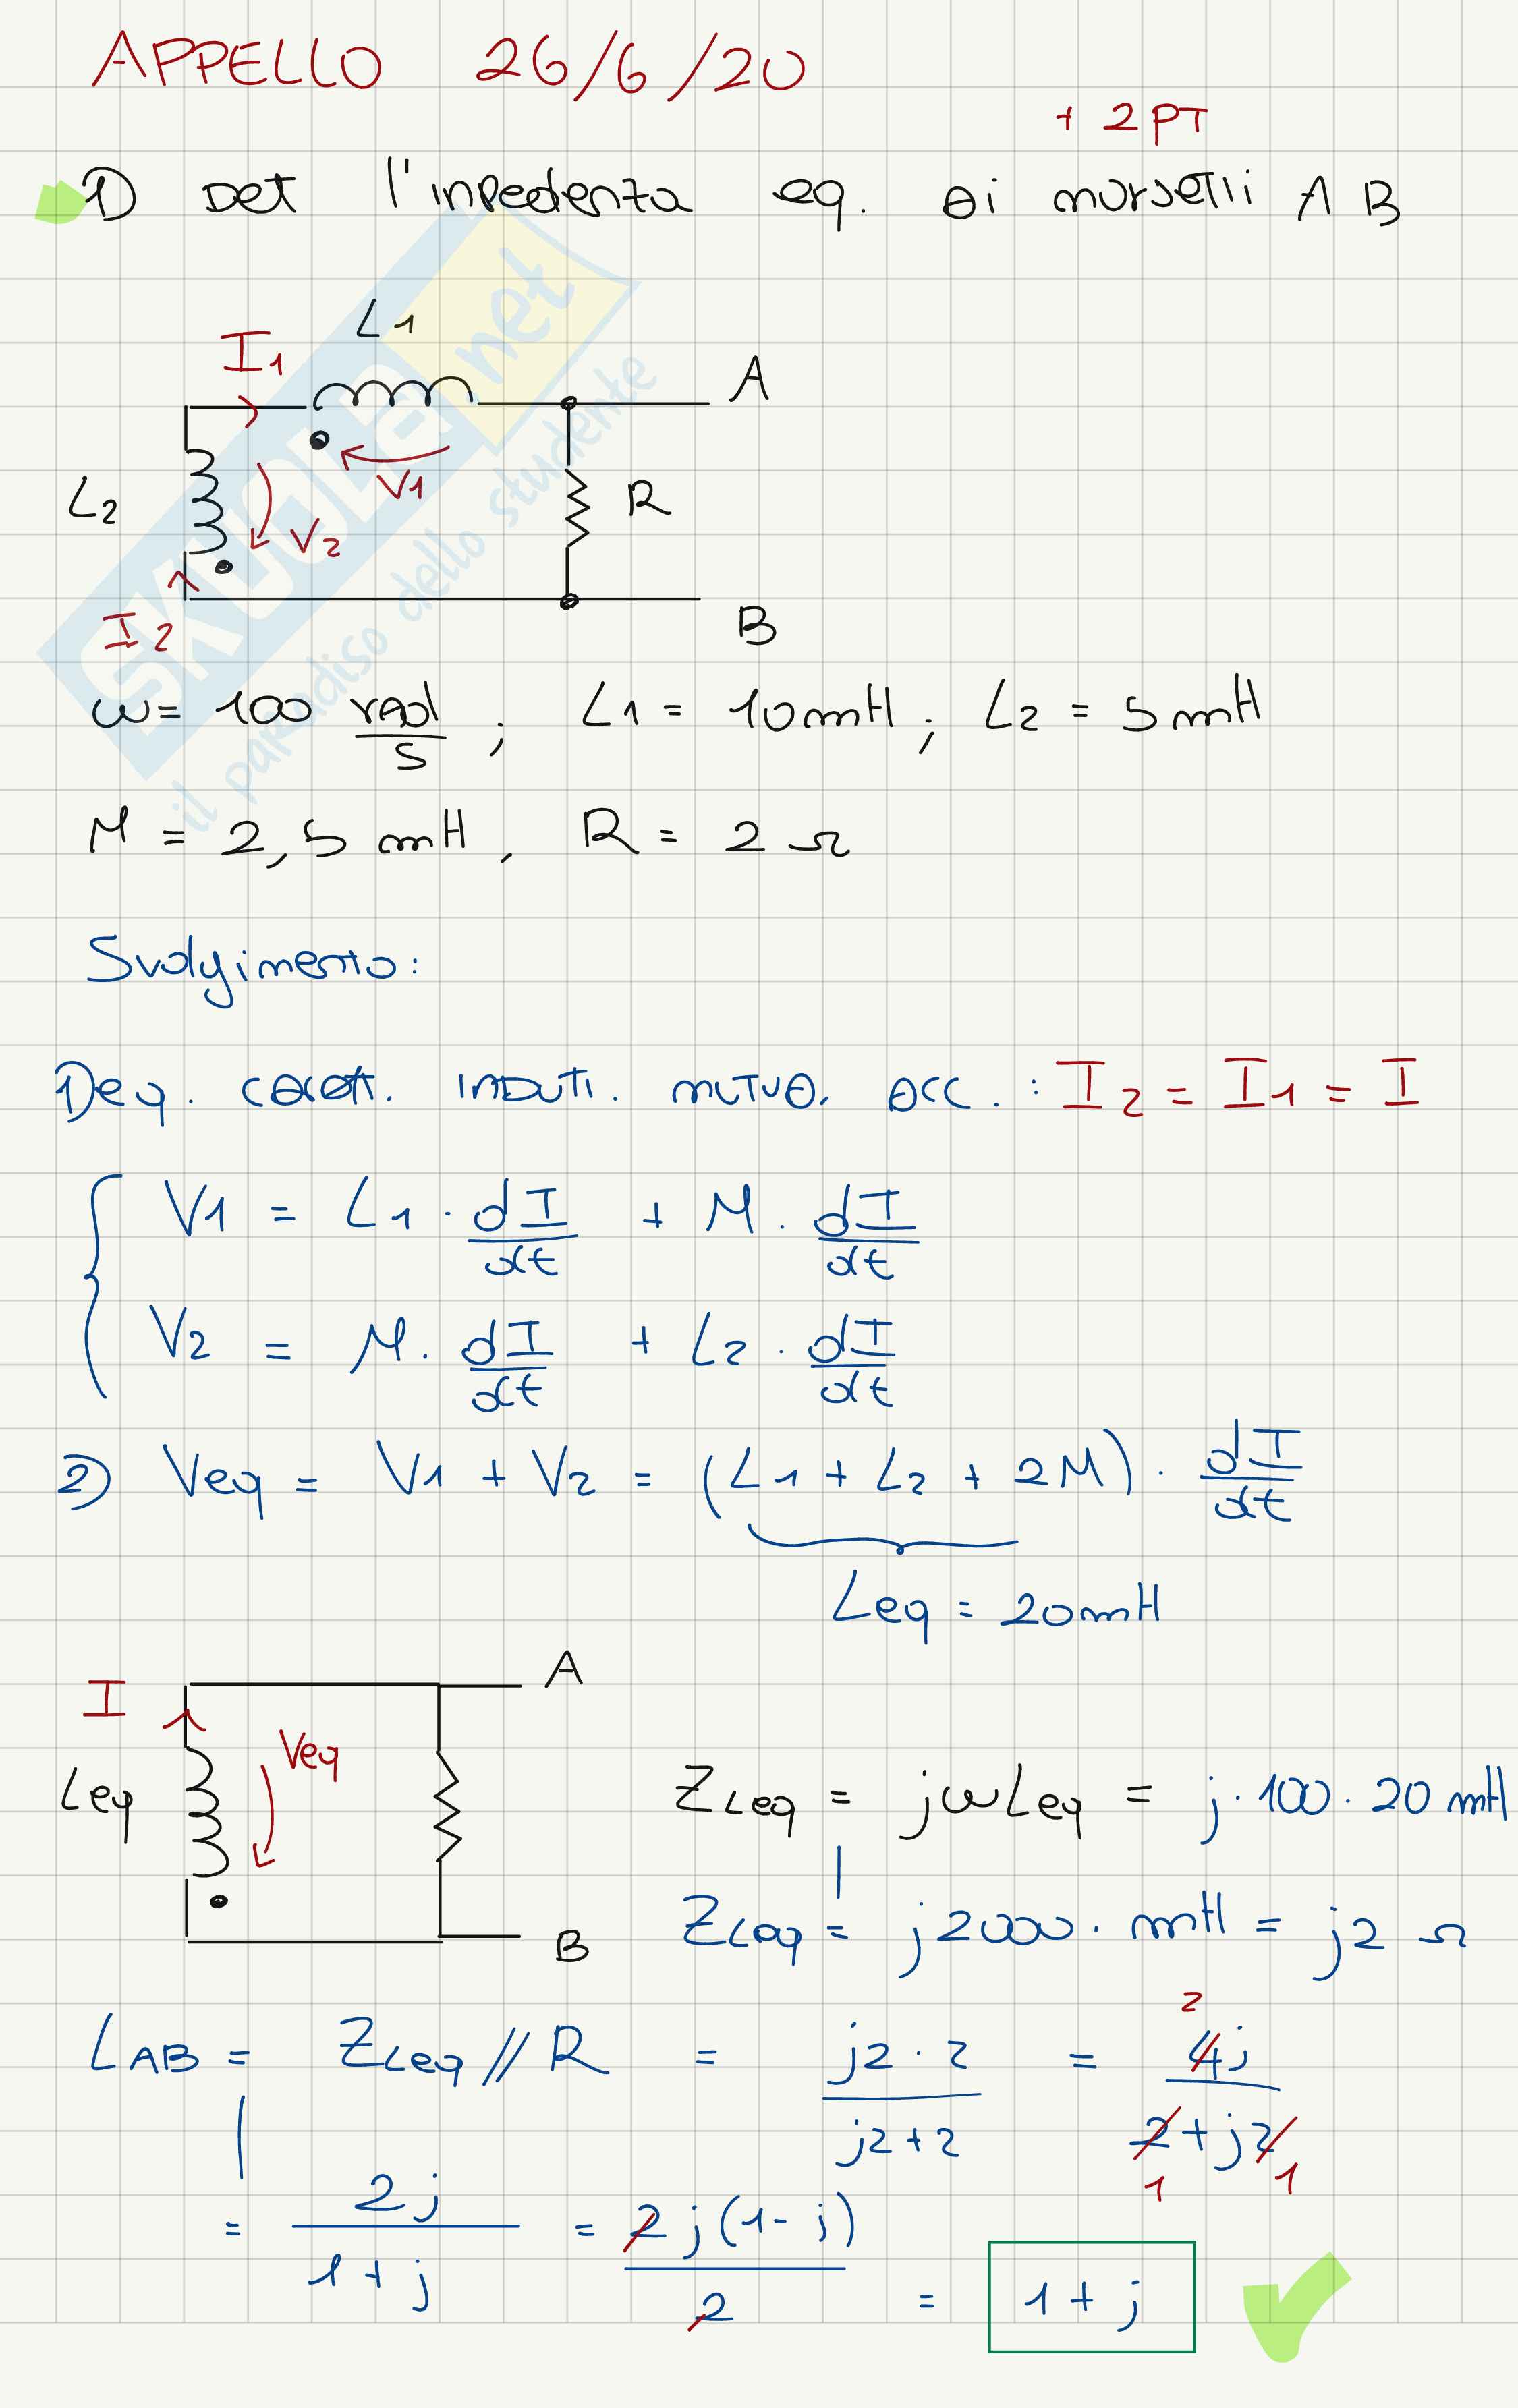 APPELLO 26/6/20
+ 2 PT
1) Det l'inpedenza eq. ai morsetti A B
L1
I1
A
V1
L2
R
V2
I2
B
ω = 100 rad/s ; L1 = 10mH ; L2 = 5mH
M = 2,5 mH, R = 2 Ω
Svolgimento:
1) eq. caratt. indutt. mutua. acc. : I2 = I1 = I
V1 = L1 · dI/dt + M · dI/dt
V2 = M · dI/dt + L2 · dI/dt
2) Veq = V1 + V2 = (L1 + L2 + 2M) · dI/dt
Leq = 20mH
A
I
Veq
Leq
ZLeq = jωLeq = j·100·20 mH
B
ZLeq = j2000 · mH = j2 Ω
LAB = ZLeq // R = j2·2/(j2+2) = 4j/(2+j2)
2
1 1
= 2j/(1+j) = 2j(1-j)/2 = 1+j
SKUOLA.net
il paradiso dello studente